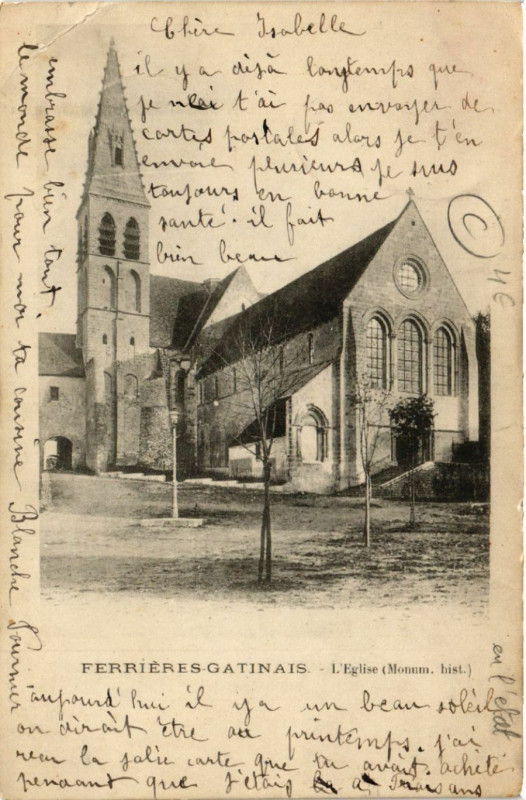 Chère Isabelle
il y a déjà longtemps que
je t'ai pas envoyer de
cartes postales alors je t'en
envoie plusieurs je suis
toujours en bonne
santé. il fait
bien beau
FERRIÈRES-GATINAIS. - L'Eglise (Monum. hist.)
aujourd'hui il y a un beau soleil
on dirait être au printemps. j'ai
recu la jolie carte que tu avait acheté
pendant que j'étais a
embrasse bien tout
le monde pour moi ta cousine Blanche Fournier
C
4€
en l'état